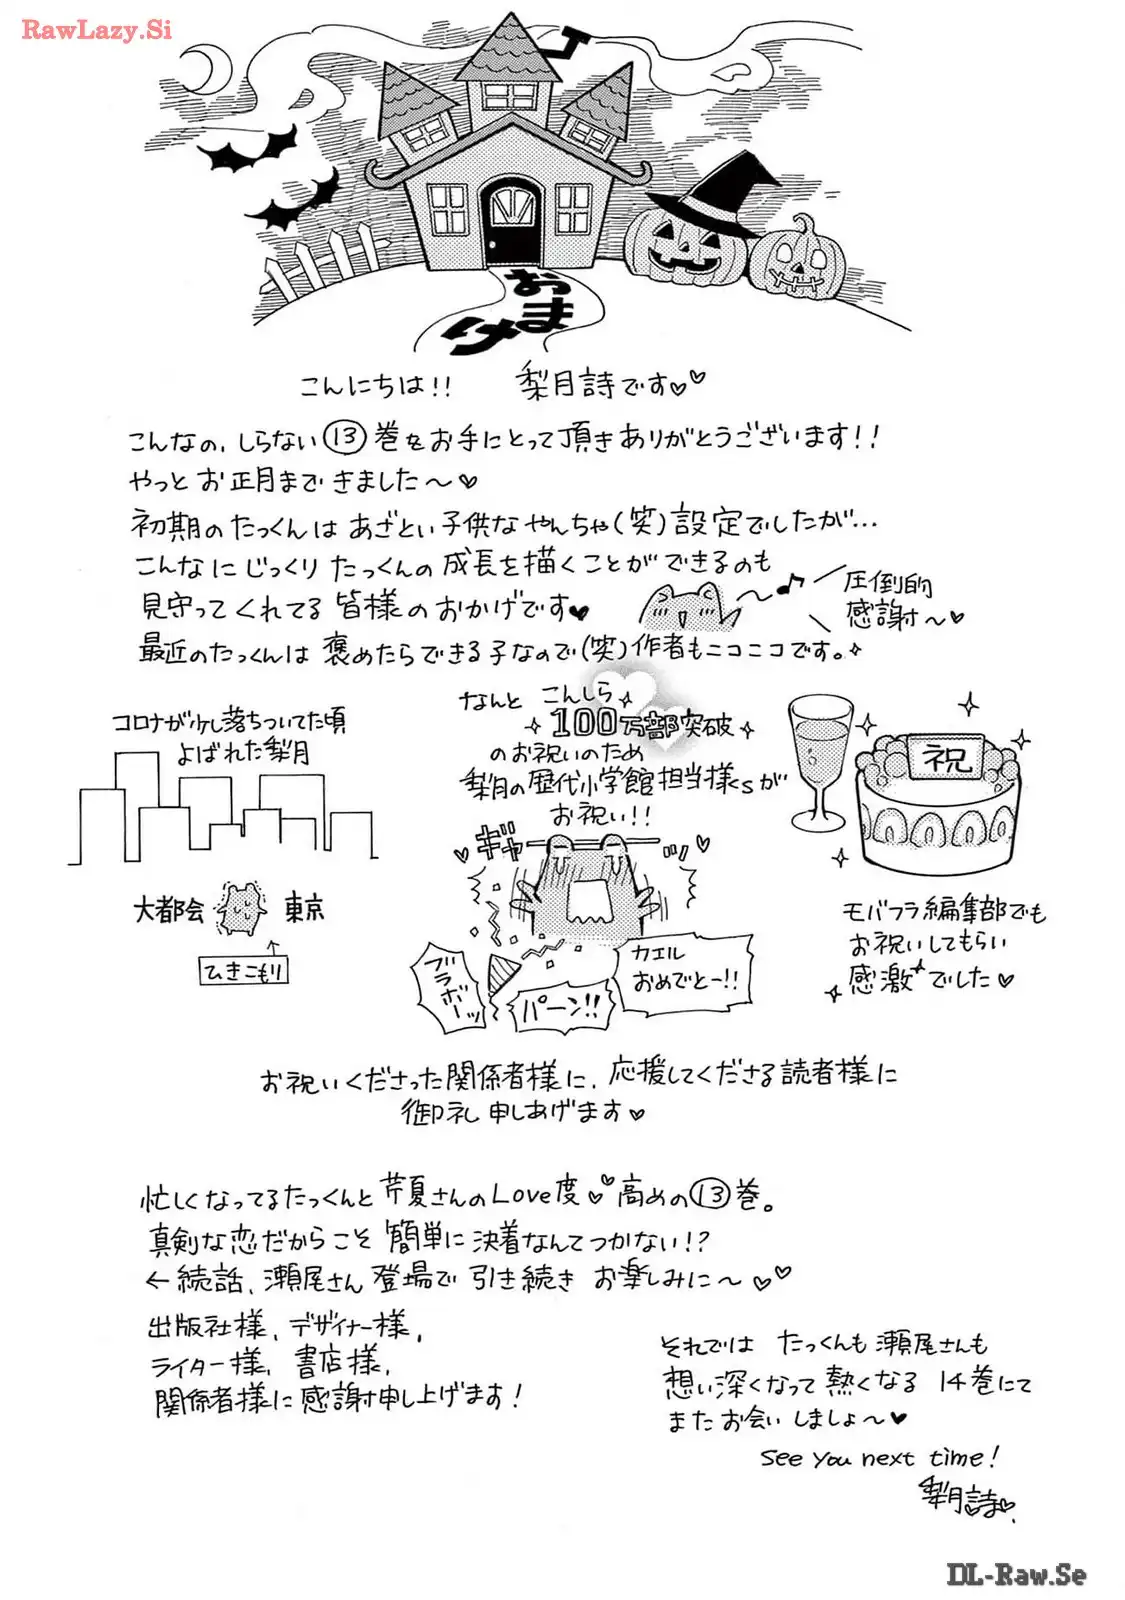 RawLazy.Si
おまけ
こんにちは!! 梨月詩です♥♥
こんなの、しらない⑬巻をお手にとって頂きありがとうございます!!
やっとお正月まできました〜♥
初期のたっくんはあざとい子供なやんちゃ(笑)設定でしたが…
こんなにじっくりたっくんの成長を描くことができるのも
見守ってくれてる皆様のおかげです♥
〜♪
圧倒的
感謝〜♥
最近のたっくんは褒めたらできる子なので(笑)作者もニコニコです。
コロナが少し落ちついてた頃
よばれた梨月
大都会 東京
ひきこもり
なんと こんしら
100万部突破
のお祝いのため
梨月の歴代小学館担当様ズが
お祝い!!
ギャーッ
ブラボーッ
パーン!!
カエル
おめでとー!!
祝
モバフラ編集部でも
お祝いしてもらい
感激でした♥
お祝いくださった関係者様に、応援してくださる読者様に
御礼申しあげます♥
忙しくなってるたっくんと芹夏さんのLove度♥♥高めの⑬巻。
真剣な恋だからこそ簡単に決着なんてつかない!?
←続話、瀬尾さん登場で引き続きお楽しみに〜♥♥
出版社様、デザイナー様、
ライター様、書店様、
関係者様に感謝申し上げます!
それでは たっくんも瀬尾さんも
想い深くなって熱くなる 14巻にて
またお会いしましょ〜♥
See you next time!
梨月詩♥.
DL-Raw.Se